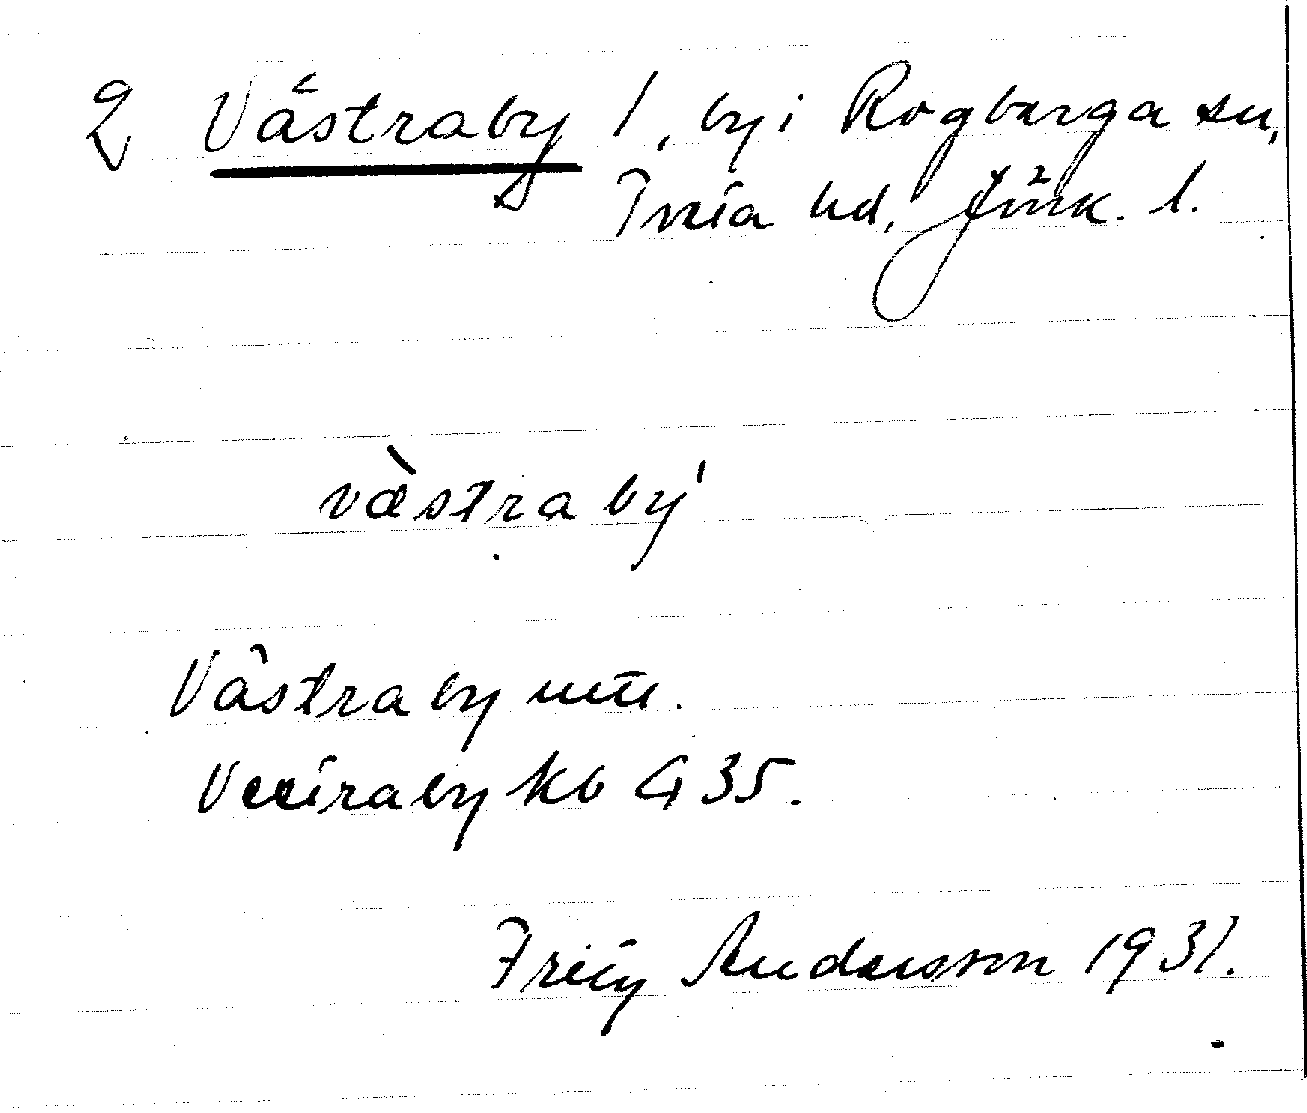 2 Västraby 1, by i Rogberga sn,
Tveta hd, Jönk. l.
västra by
Västraby uttu.
Västraby kb G 35.
Andersson 1931.